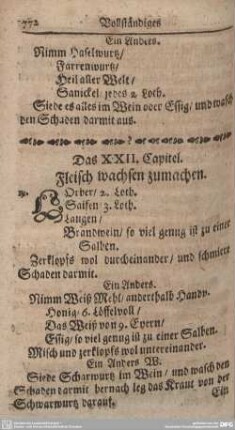 772 Vollständiges
Ein Anders.
Nimm Haselwurtz/
Farrenwurtz/
Heil aller Welt/
Sanickel jedes 2. Loth.
Siede es alles im Wein oder Essig/ und wasch
den Schaden darmit aus.
Das XXII. Capitel.
Fleisch wachsen zumachen.
Lorber/ 2. Loth.
Saifen 3. Loth.
Laugen/
Brandwein/ so viel genug ist zu einer
Salben.
Zerklopfs wol durcheinander/ und schmiere
Schaden darmit.
Ein Anders.
Nimm Weiß Mehl/ anderthalb Handv.
Honig 6. Löffelvoll/
Das Weiß von 9. Eyern/
Essig/ so viel genug ist zu einer Salben.
Misch und zerklopfs wol untereinander.
Ein Anders W.
Siede Scharwurtz im Wein/ und wasch den
Schaden darmit hernach leg das Kraut von der
Schwarwurtz darauf.
Ein